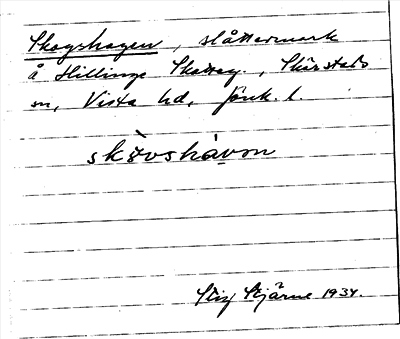 Skogshagen, slåttermark
å Hillinge Skatteg., Skärstads
sn, Vista hd, Jönk. l.
skòvshàvon
Stig Stjärne 1934.